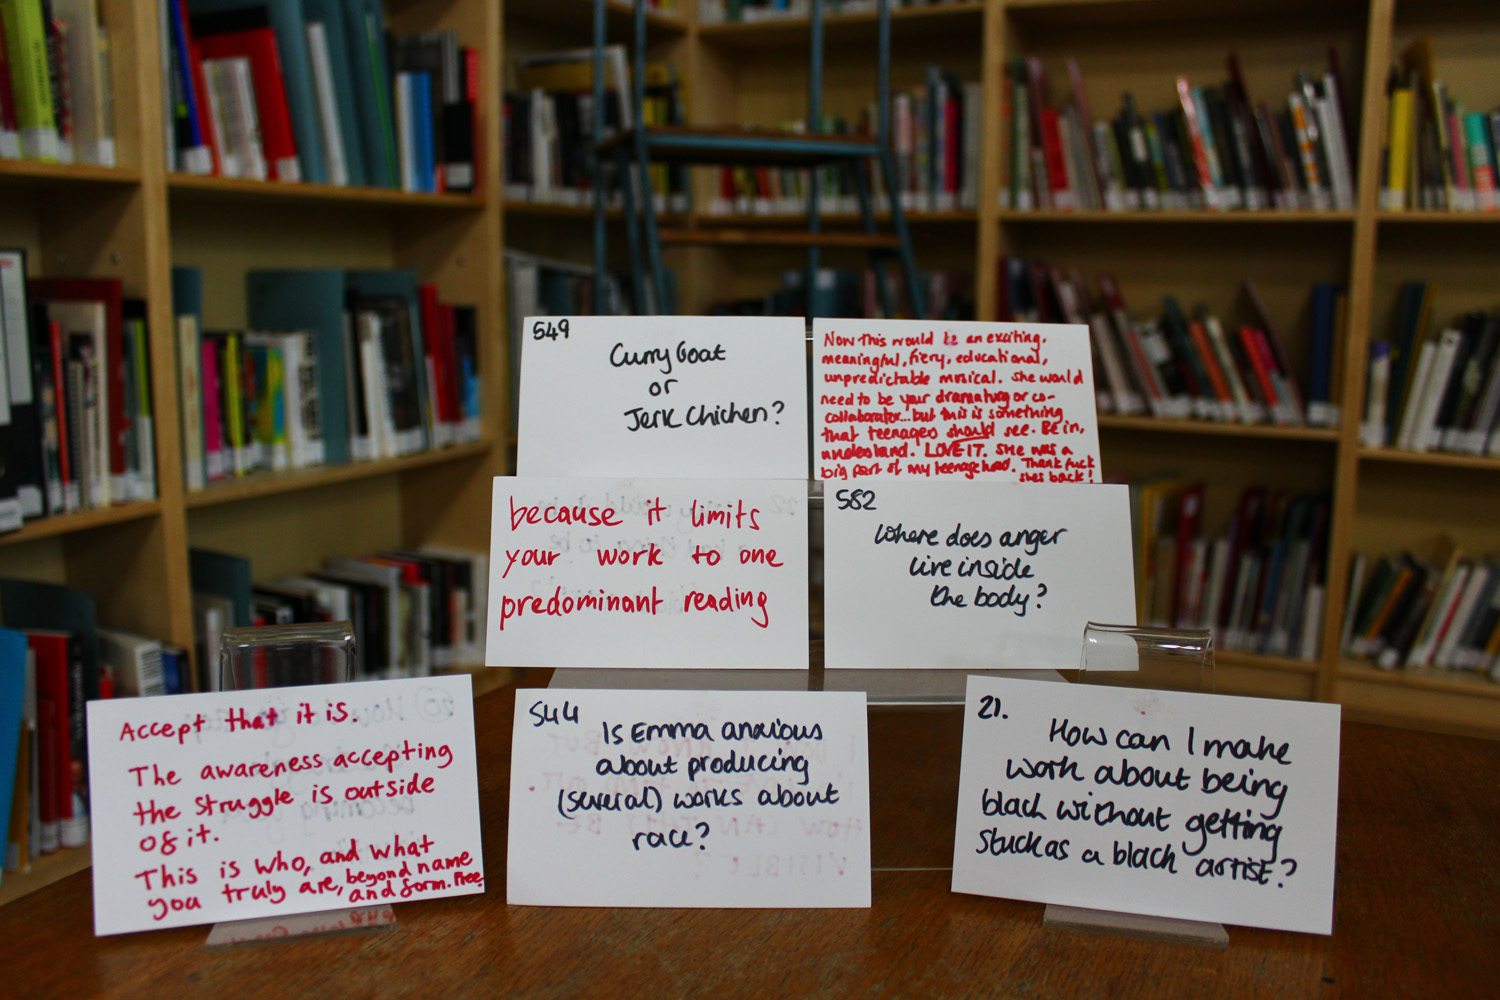 549
Curry Goat
or
Jerk Chicken?
Now this would be an exciting,
meaningful, fiery, educational,
unpredictable musical. She would
need to be your dramaturg or co-
collaborator...but this is something
that teenagers should see. BE in,
understand. LOVE IT. She was a
big part of my teenagehood. Thank fuck
shes back!
because it limits
your work to one
predominant reading
582
Where does anger
live inside
the body?
Accept that it is.
The awareness accepting
the struggle is outside
of it.
This is who, and what
you truly are, beyond name
and form. Free
544
Is Emma anxious
about producing
(several) works about
race?
21.
How can I make
work about being
black without getting
stuck as a black artist?